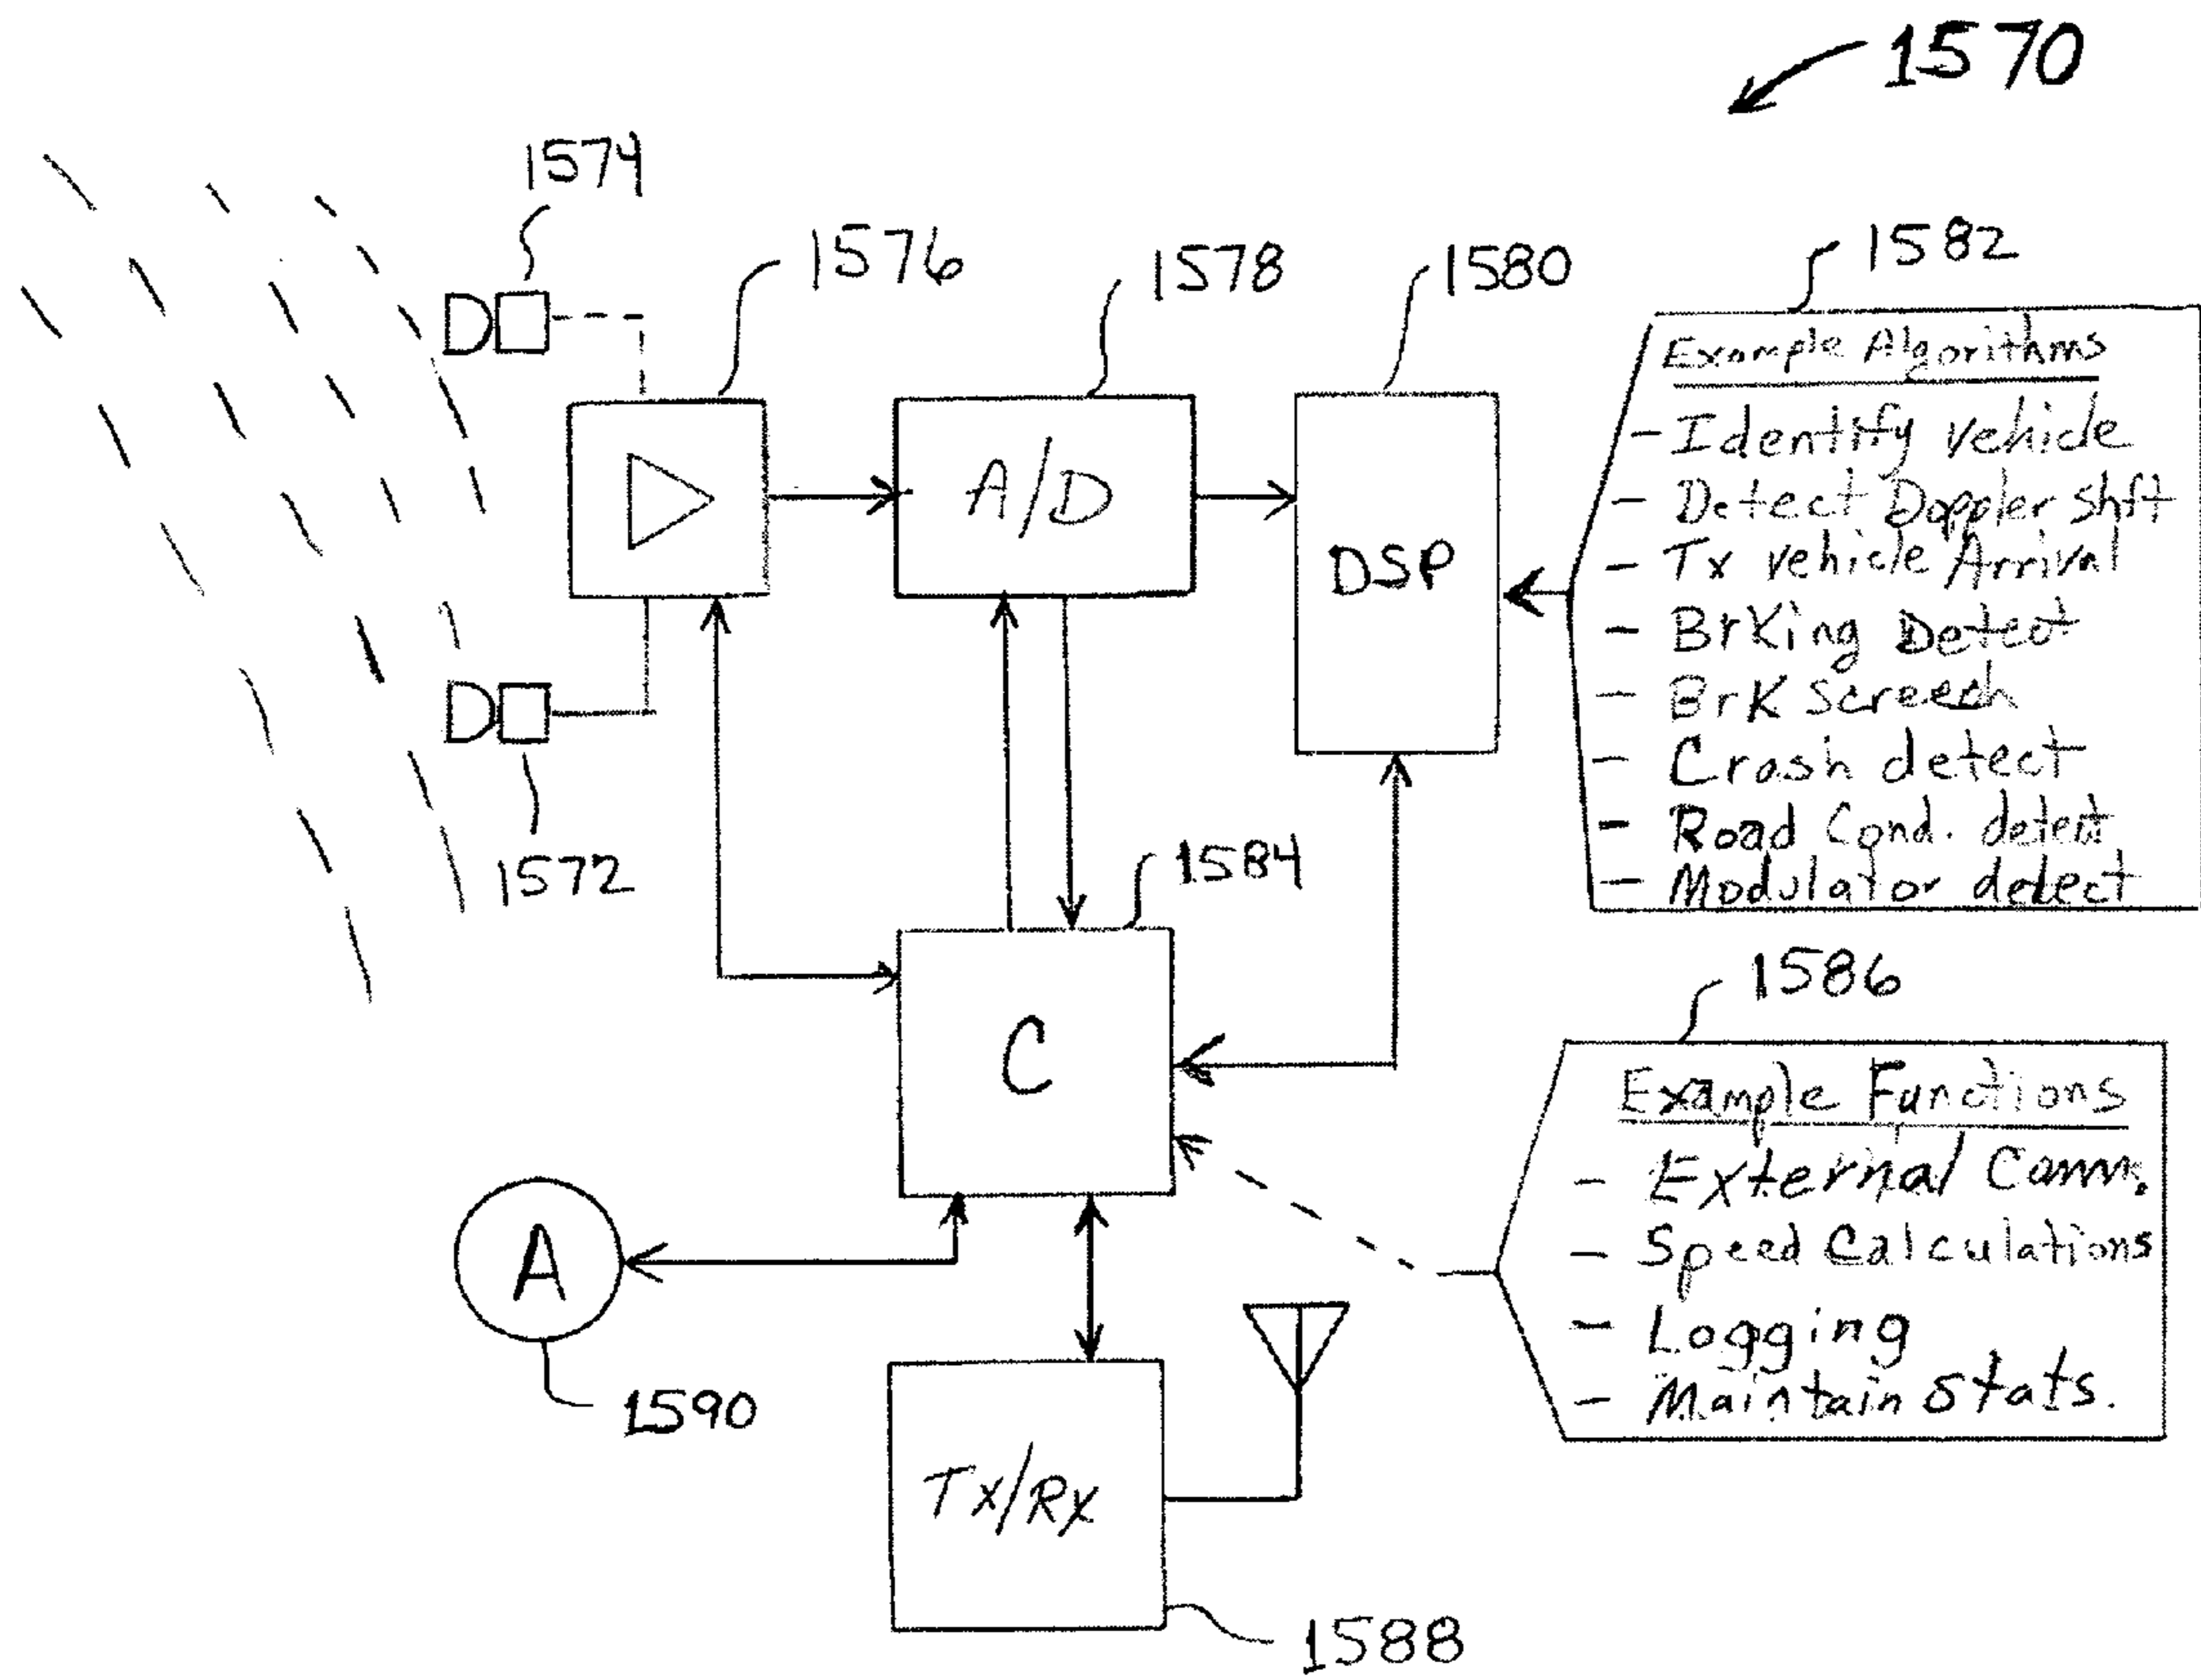 1570
1574
1576
1578
1580
1582
Example Algorithms
- Identify vehicle
- Detect Doppler Shft
- Tx vehicle Arrival
- BrKing Detect
- BrK Screech
- Crash detect
- Road Cond. detect
- Modulator detect
A/D
DSP
1572
1584
C
1586
Example Functions
- External Comm.
- Speed Calculations
- Logging
- Maintain Stats.
A
1590
Tx/Rx
1588